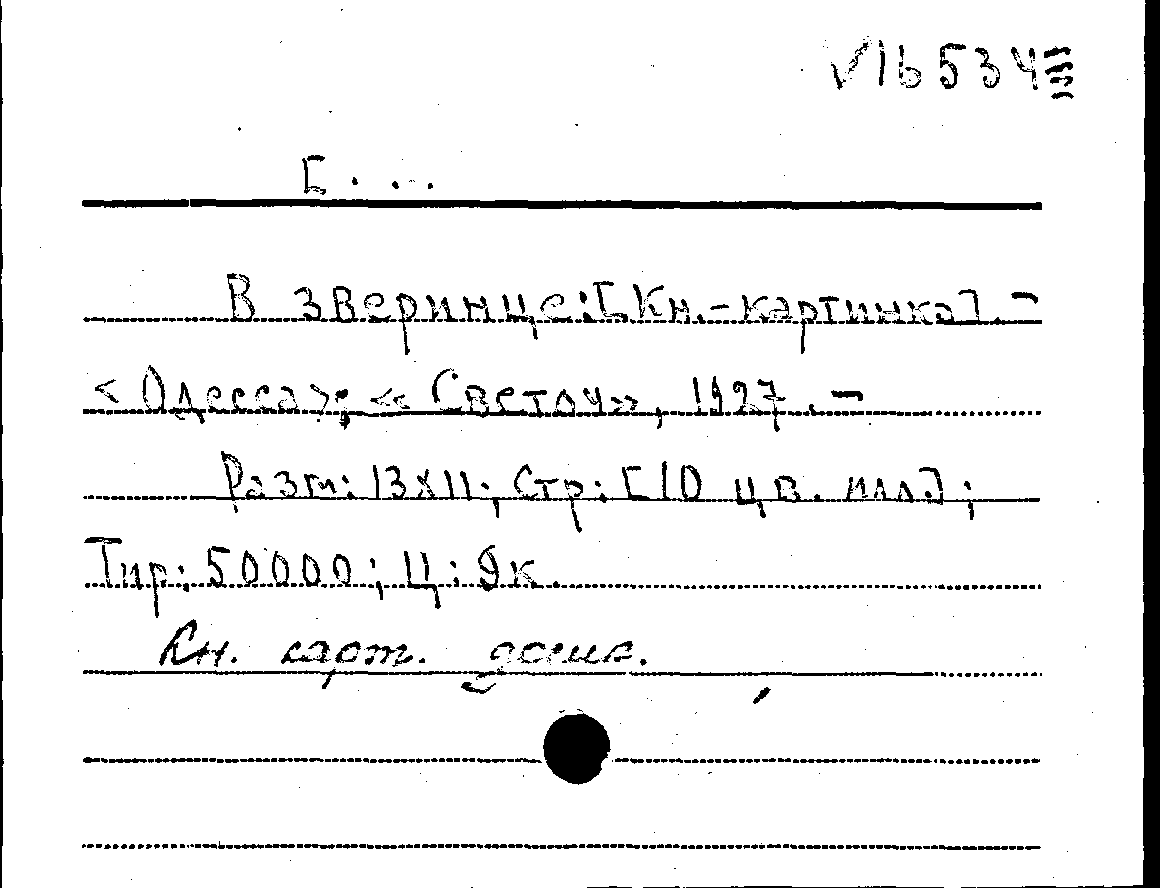 √16534
[...
В зверинце:[Кн.-картинка]. -
<Одесса>; «Светоч», 1927. -
Разм: 13х11; Стр: [10 цв. илл.];
Тир: 50000; Ц: 9к.
Кн. карт. дошк.